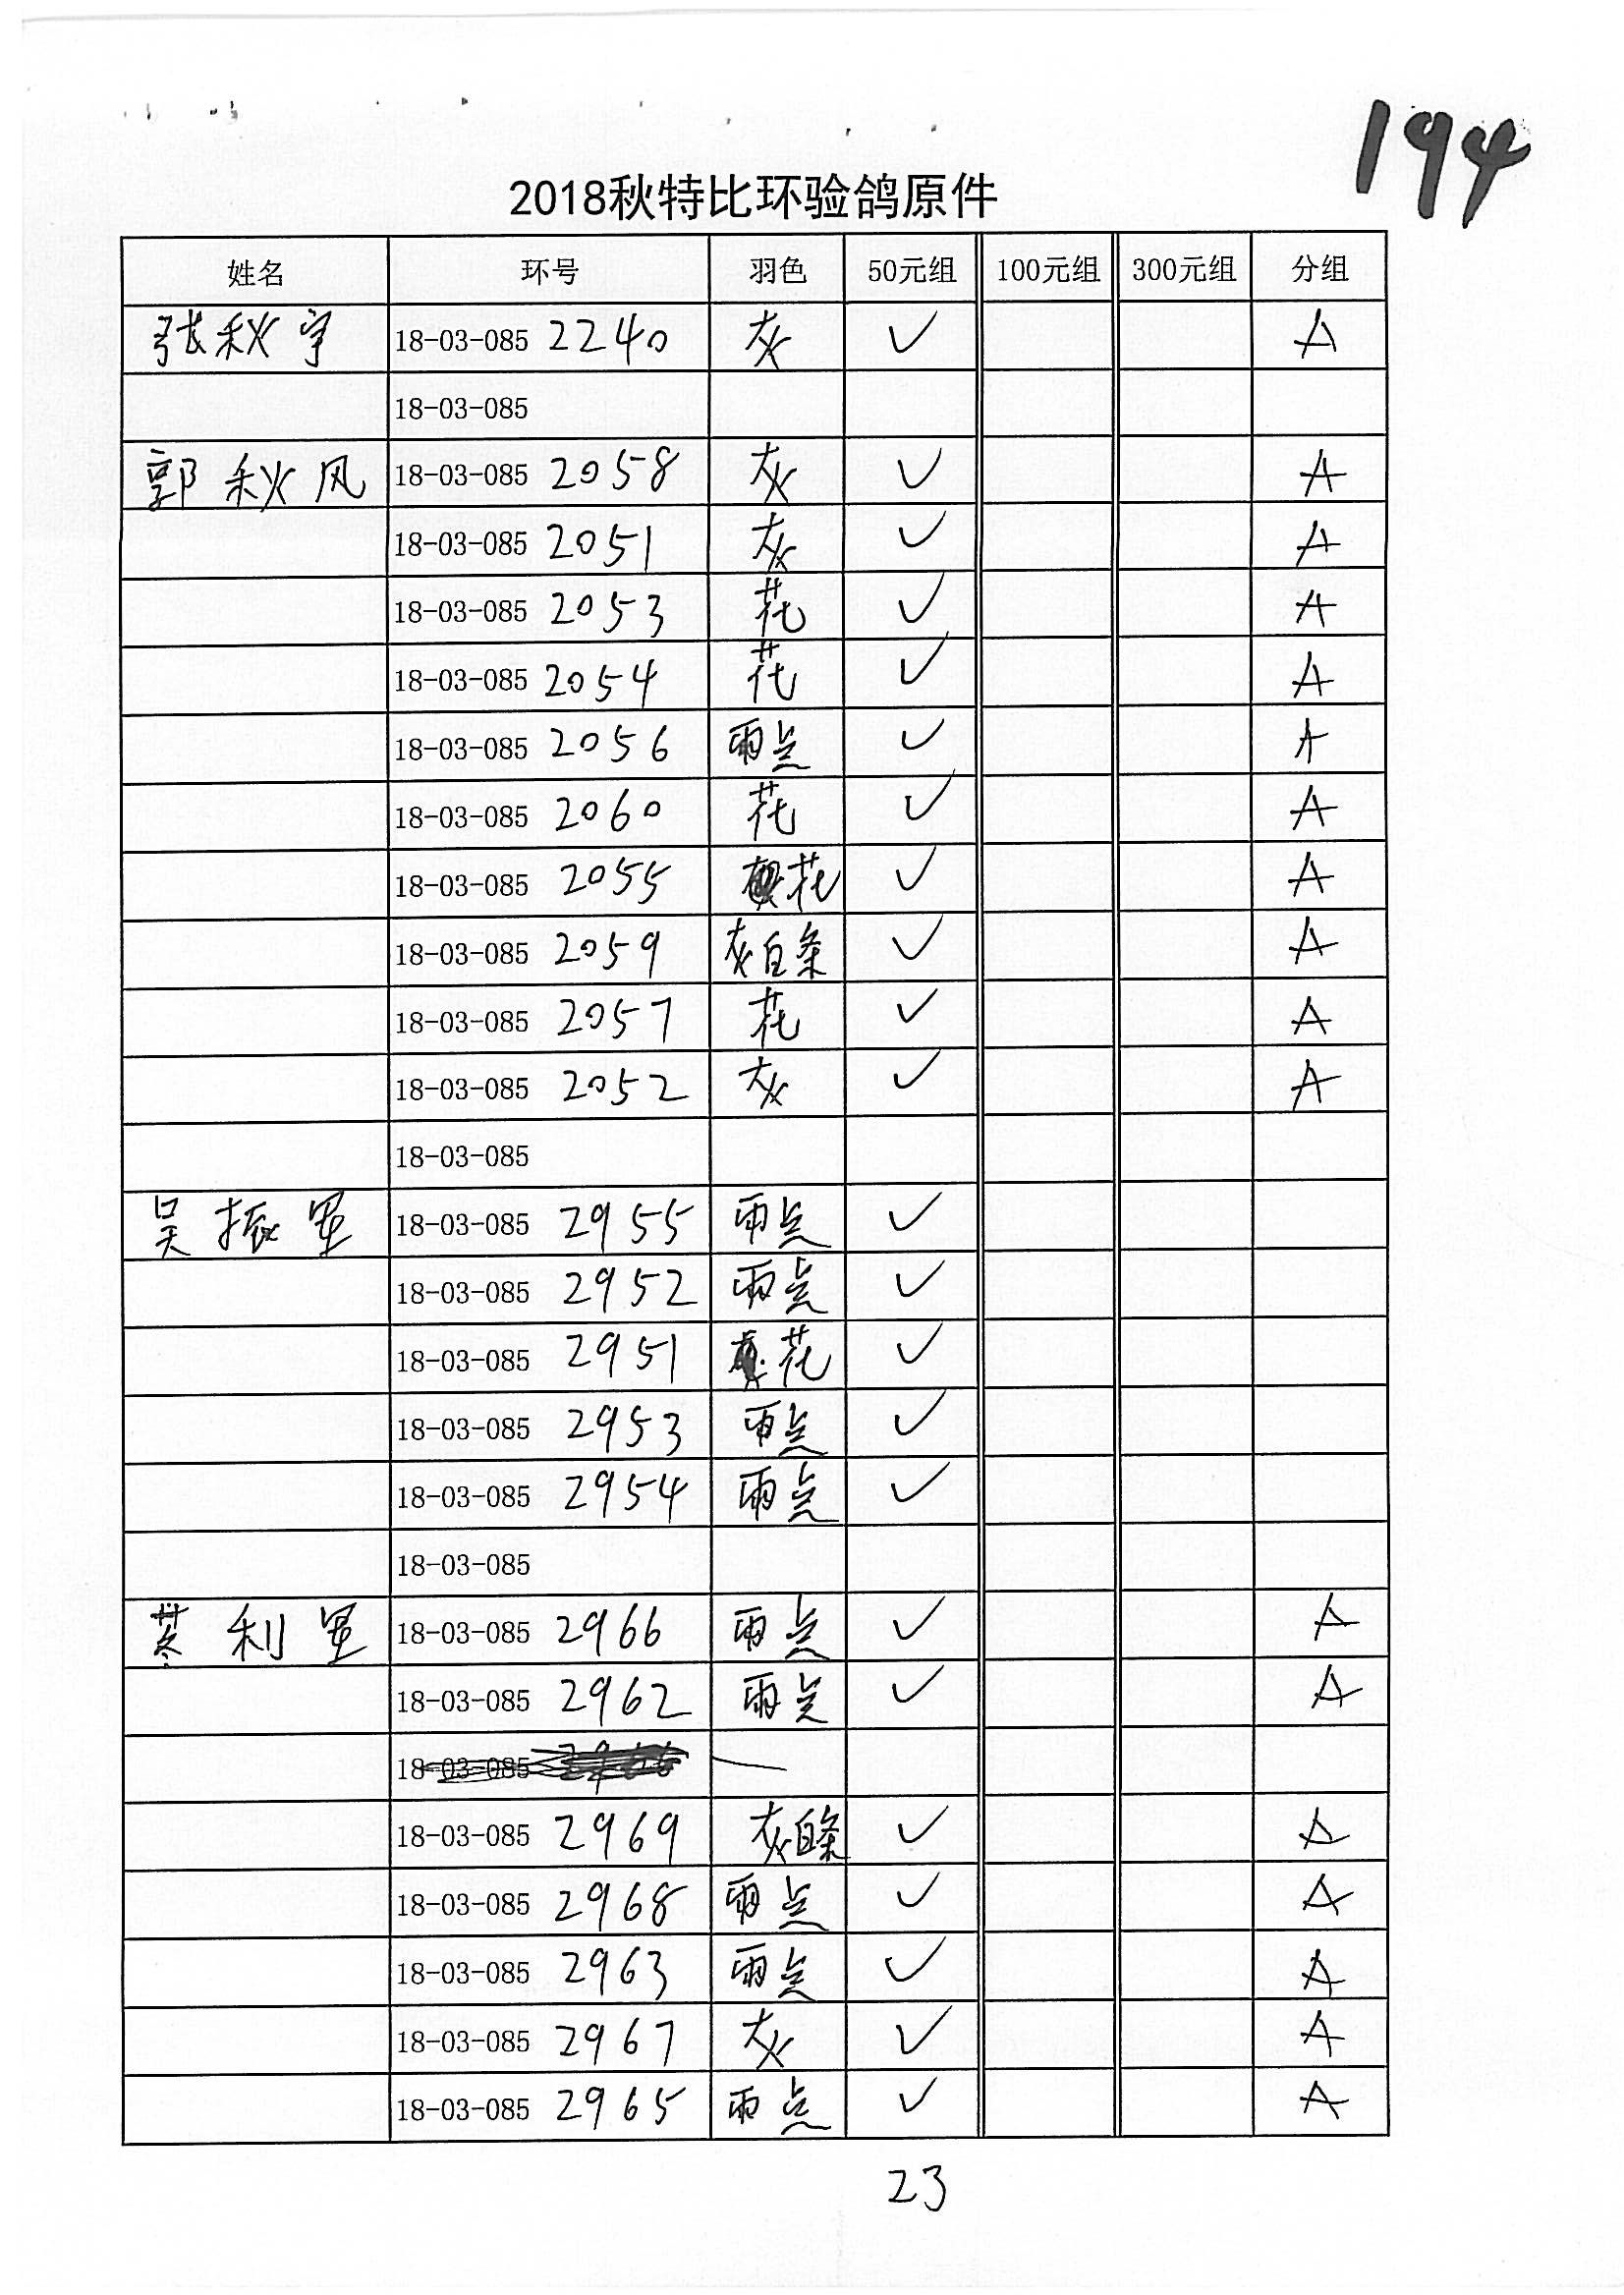 194
2018秋特比环验鸽原件
姓名 环号 羽色 50元组 100元组 300元组 分组
张秋宇 18-03-085 2240 灰 ✓ A
18-03-085
郭秋风 18-03-085 2058 灰 ✓ A
18-03-085 2051 灰 ✓ A
18-03-085 2053 花 ✓ A
18-03-085 2054 花 ✓ A
18-03-085 2056 雨点 ✓ A
18-03-085 2060 花 ✓ A
18-03-085 2055 花 ✓ A
18-03-085 2059 灰白条 ✓ A
18-03-085 2057 花 ✓ A
18-03-085 2052 灰 ✓ A
18-03-085
吴振 18-03-085 2955 雨点 ✓
18-03-085 2952 雨点 ✓
18-03-085 2951 花 ✓
18-03-085 2953 雨点 ✓
18-03-085 2954 雨点 ✓
18-03-085
利 18-03-085 2966 雨点 ✓ A
18-03-085 2962 雨点 ✓ A
18-03-085
18-03-085 2969 灰白条 ✓ A
18-03-085 2968 雨点 ✓ A
18-03-085 2963 雨点 ✓ A
18-03-085 2967 灰 ✓ A
18-03-085 2965 雨点 ✓ A
23